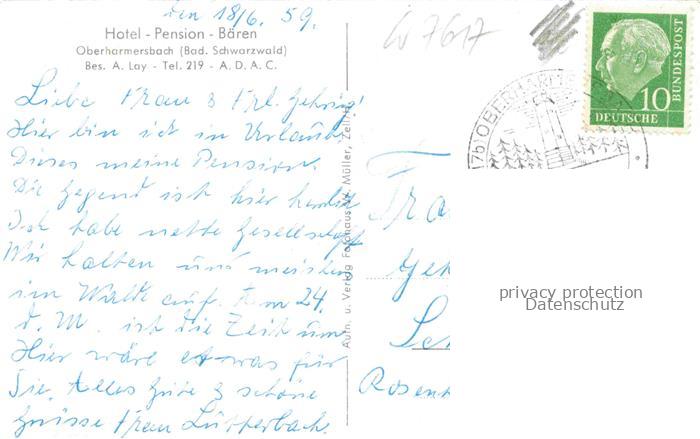 den 18/6. 59.
Hotel - Pension - Bären
Oberharmersbach (Bad. Schwarzwald)
Bes. A. Lay - Tel. 219 - A. D. A. C.
Liebe Frau & Frl. Gehrig!
Hier bin ich in Urlaub.
Dieses meine Pension.
Die Gegend ist hier herrlich
Ich habe nette Gesellschaft
Wir halten uns meistens
im Walde auf. Am 24.
d. M. ist die Zeit um.
Hier wäre etwas für
Sie. Alles Gute & schöne
Grüsse Frau Lütterbach.
Aufn. u. Verlag Fotohaus W. Müller, Zell
W 7617
DEUTSCHE
BUNDESPOST
10
OBERHARM
Fra
Geh
Rosen
privacy protection
Datenschutz